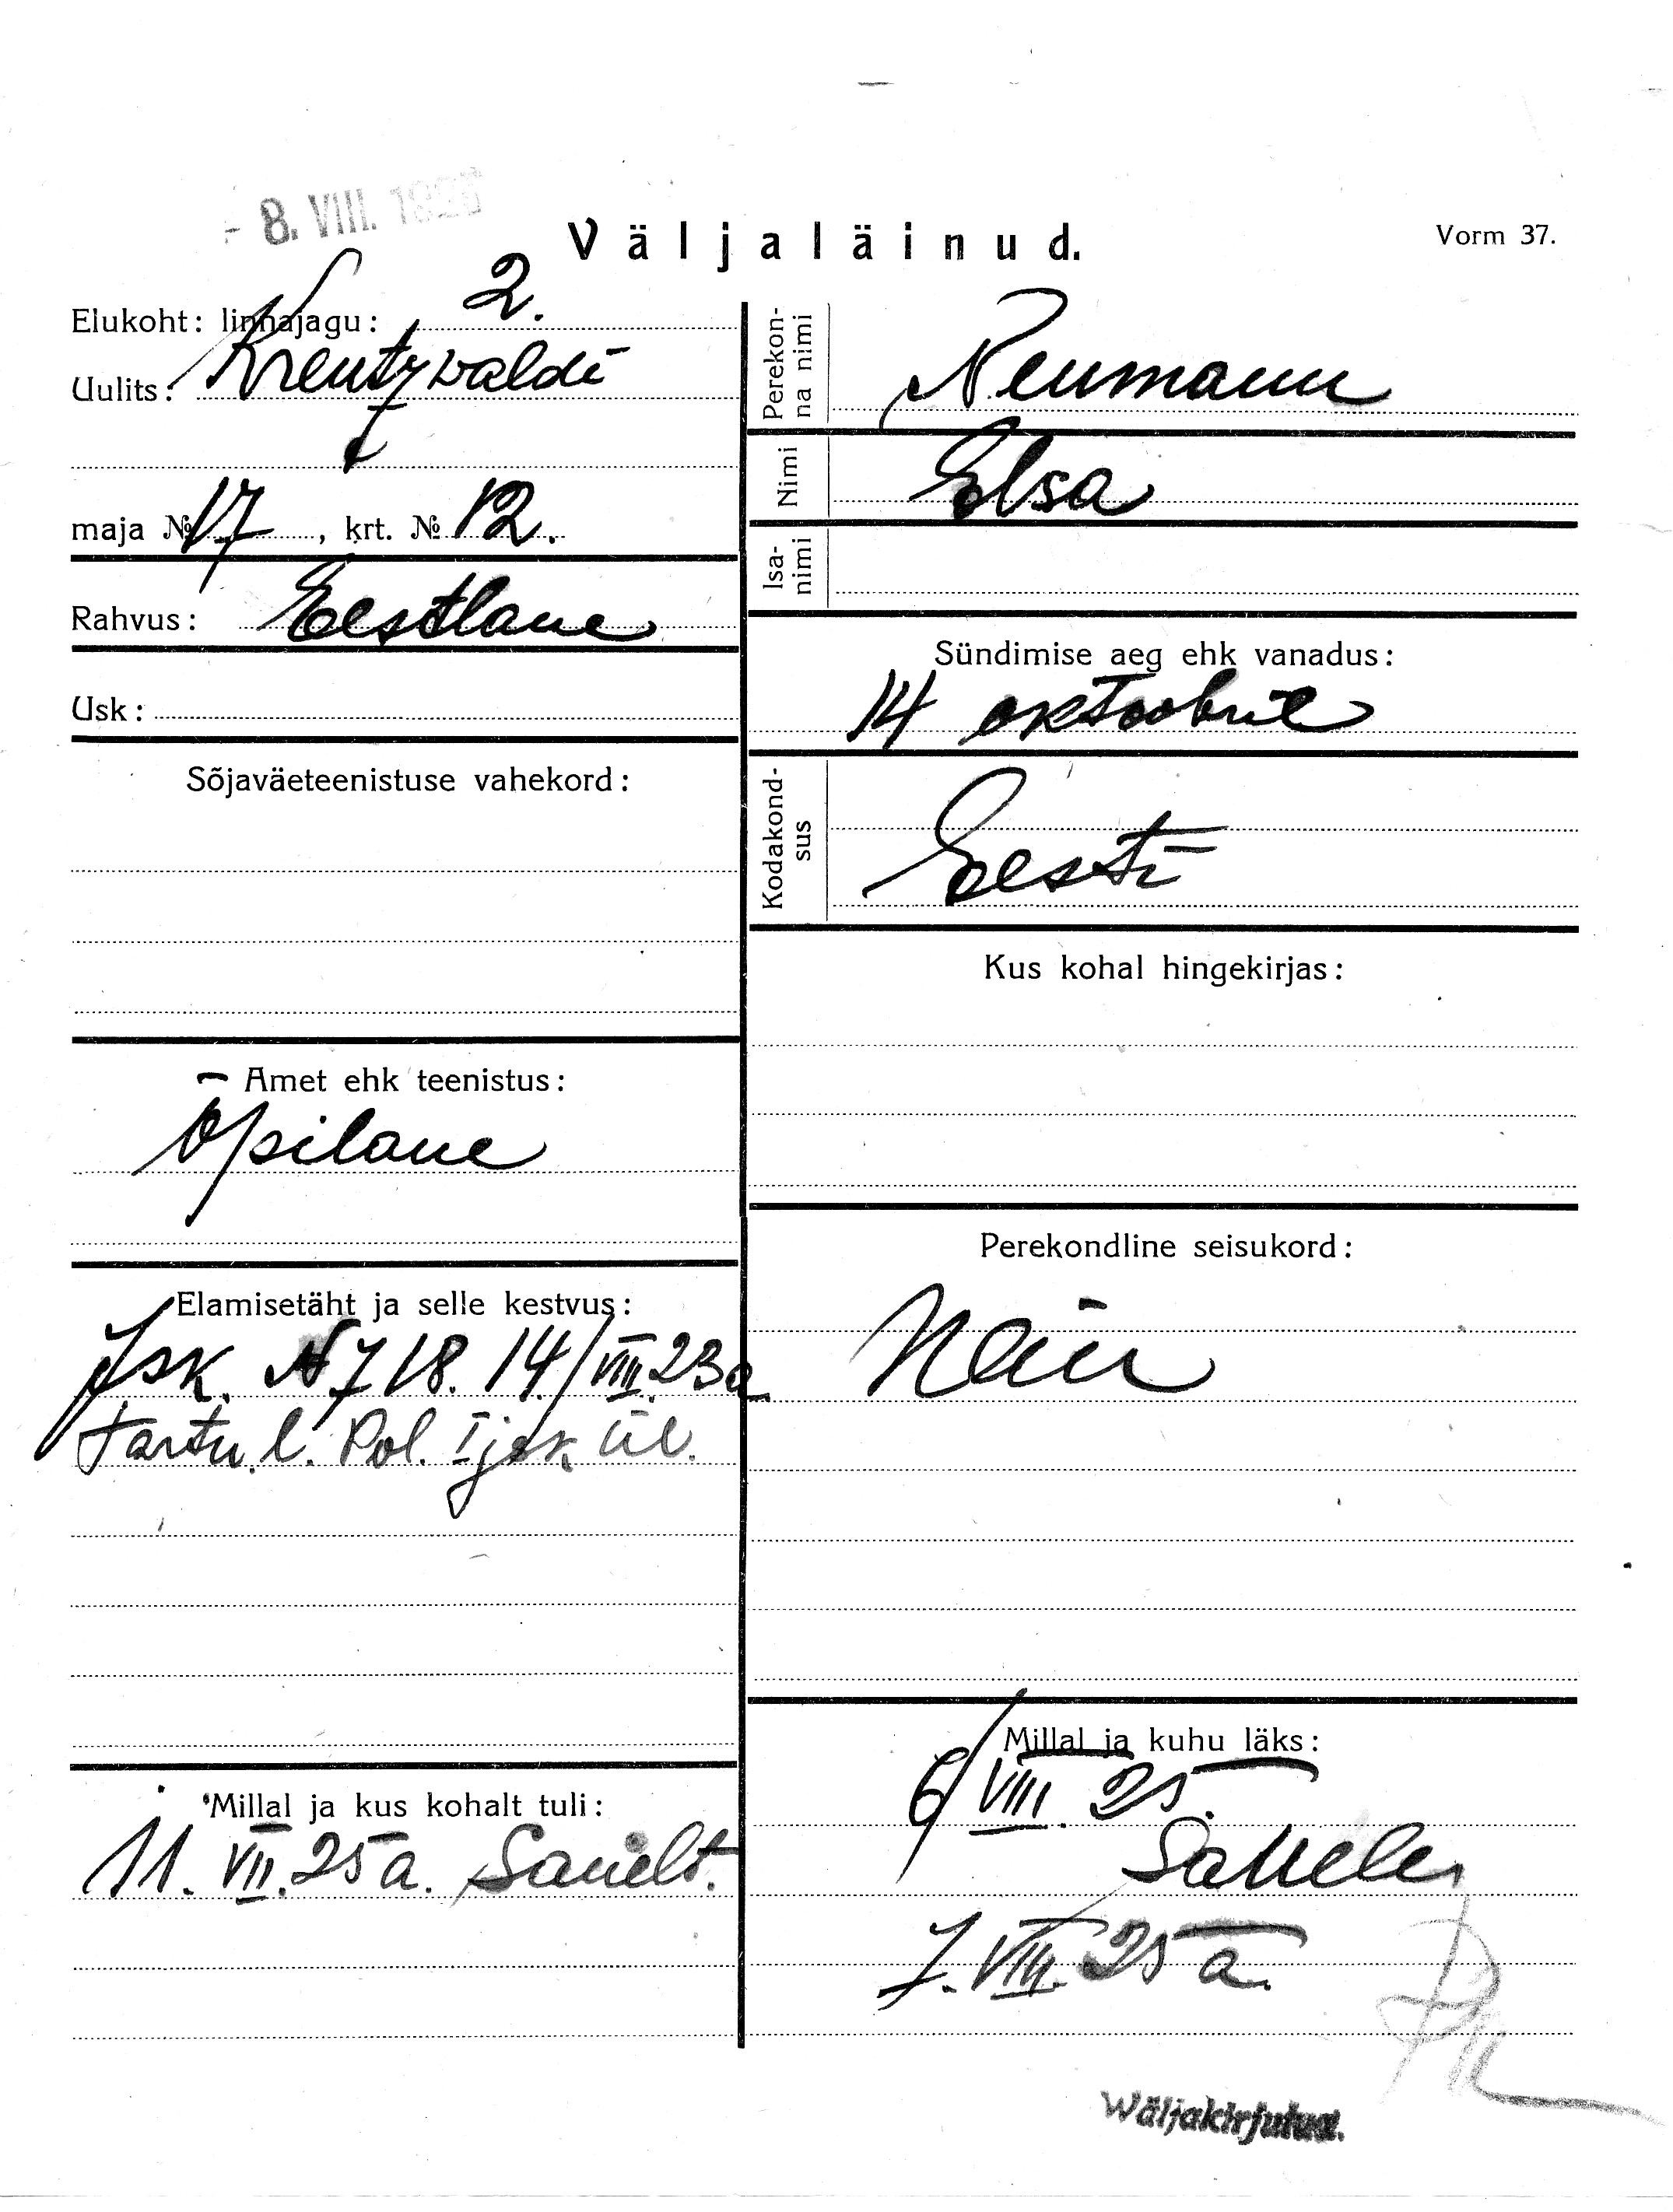 - 8. VIII. 192
Väljaläinud.
Vorm 37.
Elukoht: linnajagu: 2.
Uulits: Kreutzvaldi
t
maja № 17, krt. № 12.
Rahvus: Eestlane
Usk:
Sõjaväeteenistuse vahekord:
Amet ehk teenistus:
Õpilane
Elamisetäht ja selle kestvus:
Isk. N 718. 14/VIII. 23a
Tartu l. Pol. I jsk ül.
Millal ja kus kohalt tuli:
11. VII. 25 a.
Perekonna nimi
Neumann
Nimi
Elsa
Isanimi
Sündimise aeg ehk vanadus:
14 oktoobril
Kodakondsus
Eesti
Kus kohal hingekirjas:
Perekondline seisukord:
Neiu
Millal ja kuhu läks:
6/VIII. 25.
7. VIII. 25 a.
Wäljakirjutud.